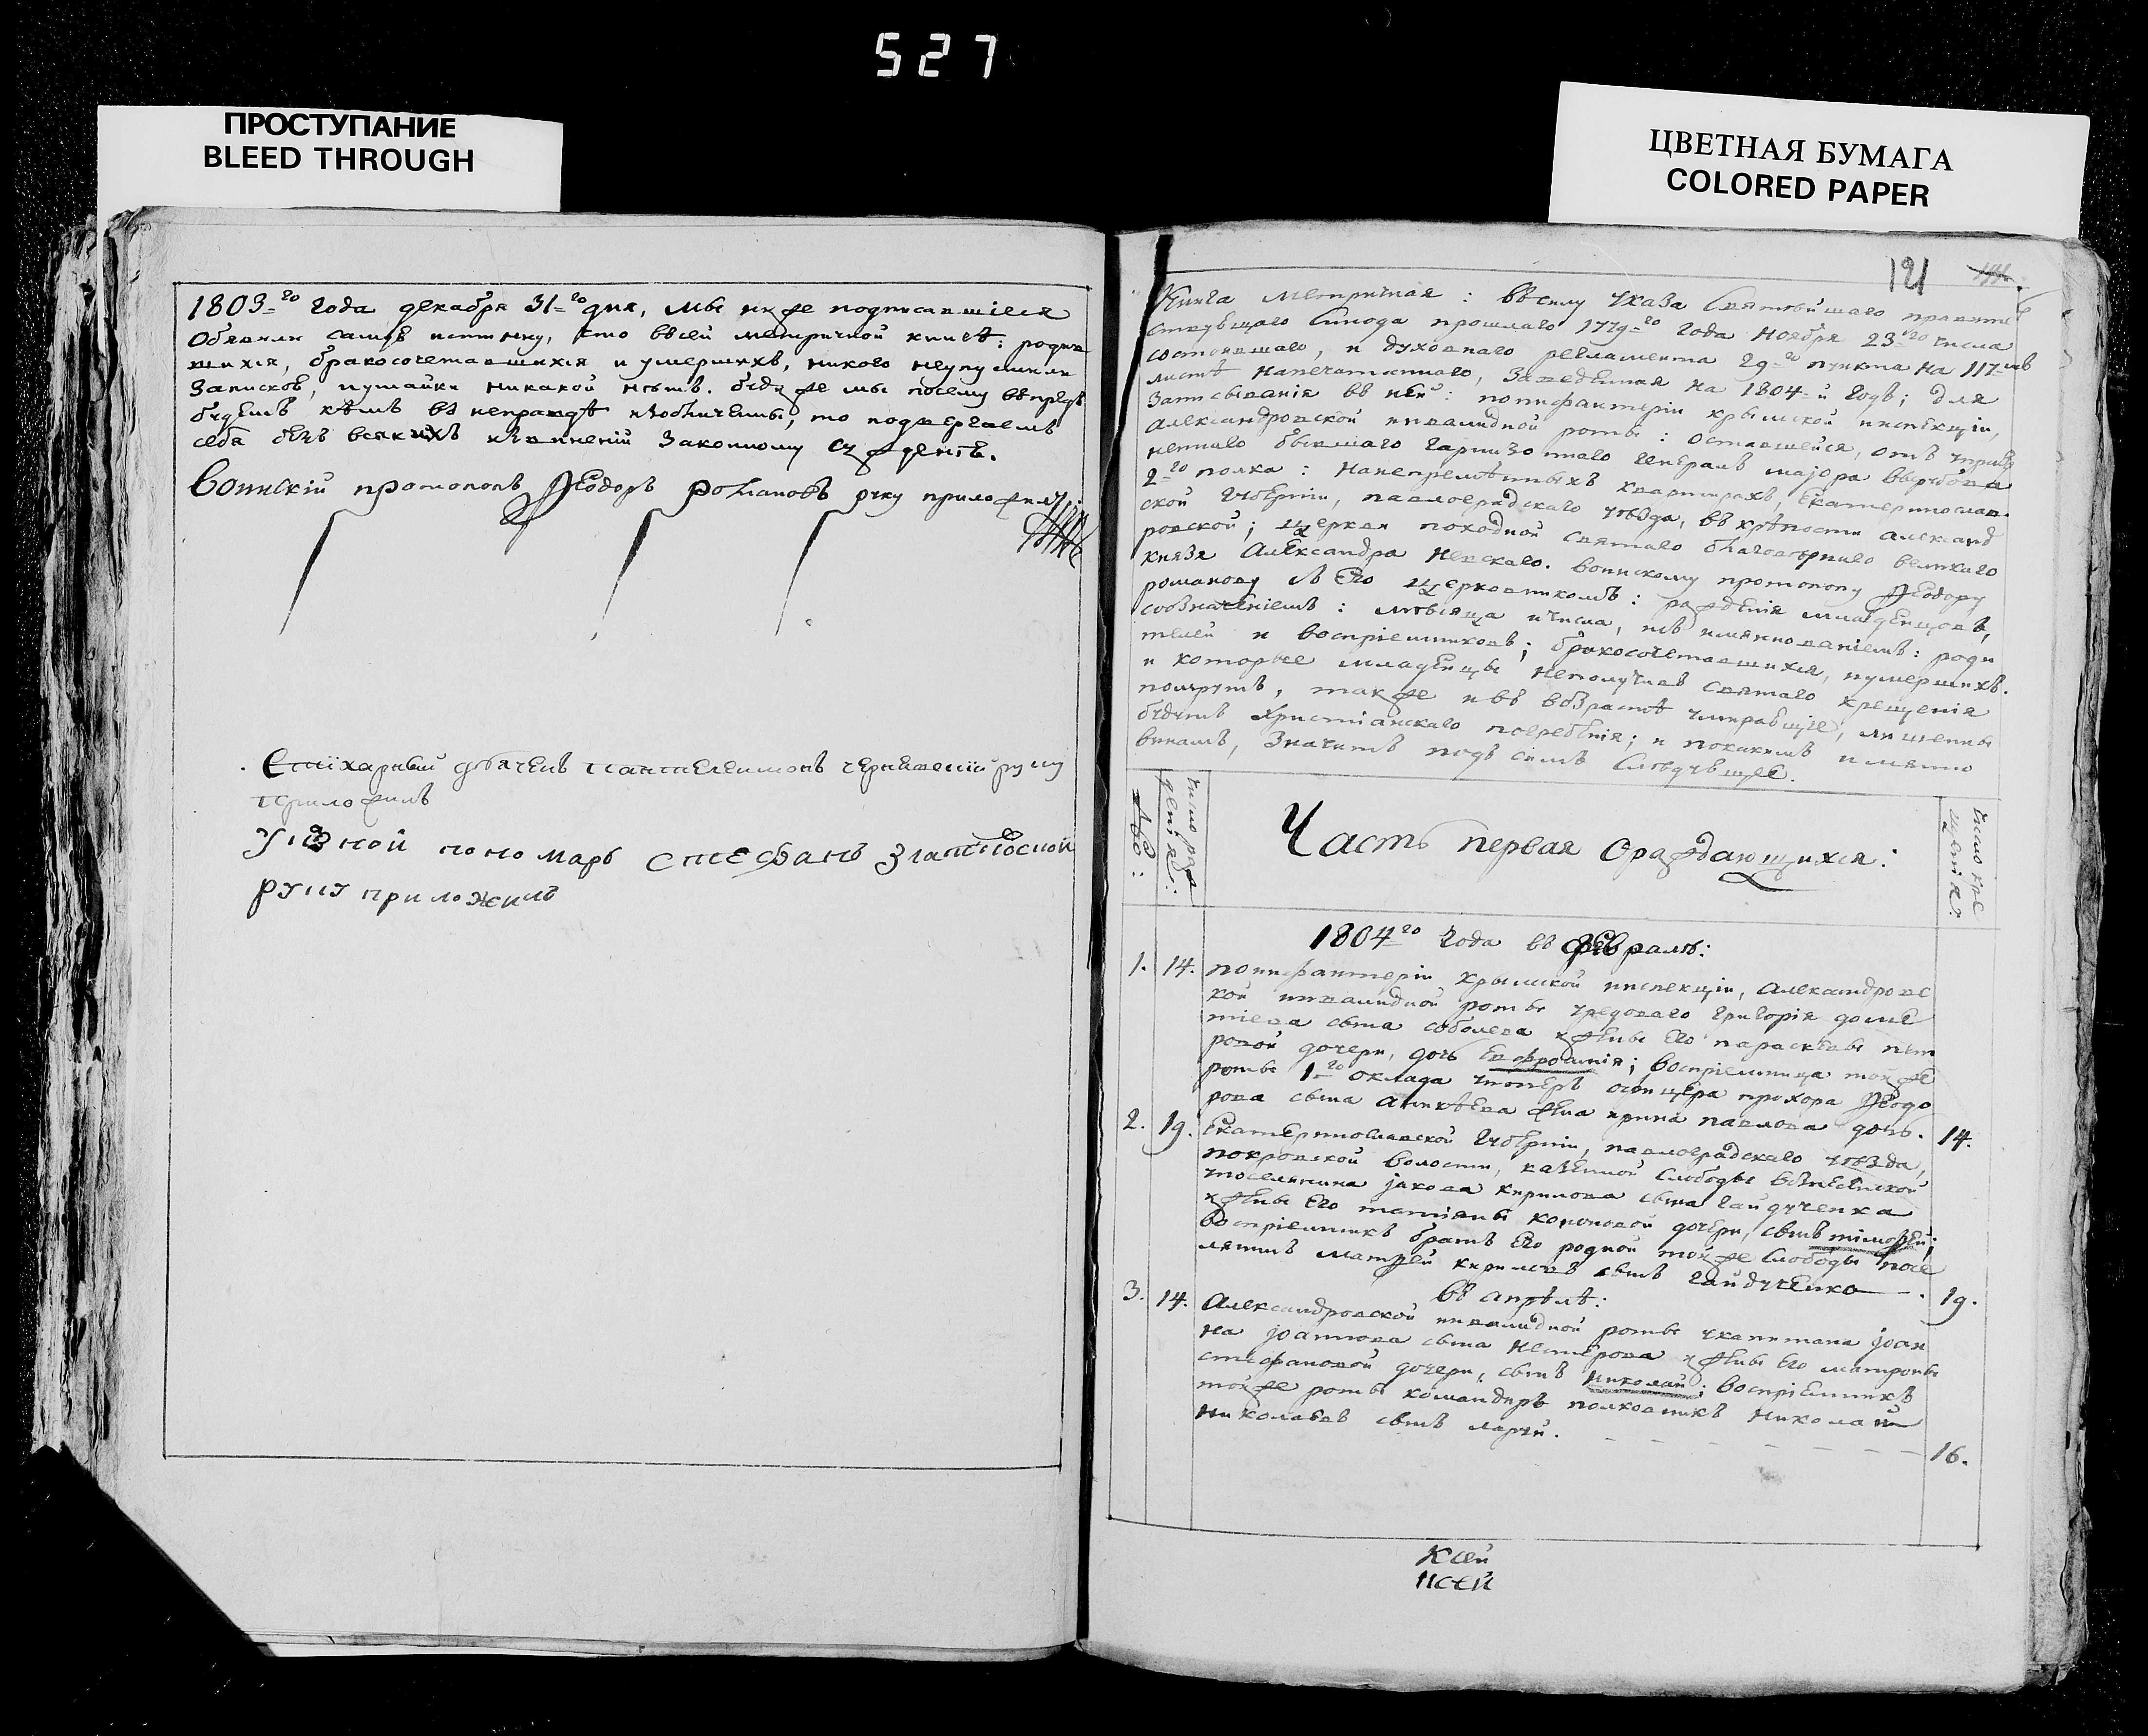 527
ПРОСТУПАНИЕ
BLEED THROUGH
ЦВЕТНАЯ БУМАГА
COLORED PAPER
1803-го года декабря 31-го дня, мы ниже подписавшіеся
объявили самую истинну, что всей метричной книгѣ: родив
шихся, бракосочетавшихся и умершихъ, никого неупустили
Записковъ, и утайки никакой нѣтъ. буде же мы посему впредь
будемъ кѣмъ въ неправдѣ изобличены, то подвергаемъ
себя безъ всякихъ извиненій Законному
Воинскій протопопъ Ѳеодоръ Романовъ руку приложилъ
Стихарный дьячекъ Пантелеимонъ руку
приложилъ
пономарь Стефанъ
руку приложилъ
121
Книга метричная: въсилу указа Святѣйшаго правител
ствующаго Синода прошлаго 1779-го года Ноября 23-го числа
состоявшаго, и духовнаго регламента 29-го пункта на 117-мъ
листѣ напечатаннаго, Заведенная на 1804-й годъ; для
Записыванія въ ней: поинфантеріи крымской инспекціи,
Александровской инвалидной роты: оставшейся, отъ
бывшаго гарнизоннаго генералъ маіора
2-го полка: нанепремѣнныхъ квартирахъ, Екатеринослав
ской губерніи, павлоградскаго уѣзда, въ крѣпости александ
ровской; церкви походной святаго благовѣрнаго великаго
князя Александра Невскаго. воинскому протопопу Ѳеодору
романову съ Его церковникомъ: рожденія младенцовъ,
собзначеніемъ: мѣсяца ичисла, исъ имянованіемъ: роди
телей и воспріемниковъ; бракосочетавшихся, иумершихъ.
и которые младенцы неполучивъ святаго крещенія
помрутъ, также ивъ возрастѣ умиравщіе, лишенны
будутъ Христіанскаго погребенія; и покакимъ имянно
винамъ, Значитъ подъ симъ Слѣдующее.
Число рож
денія:
Часть первая Ораждающихся:
Число кре
щенія:
1804-го года въ февралѣ:
1. 14. поинфантеріи крымской инспекціи, Александровс
кой инвалидной роты рядоваго григорія доме
тіева сына соболева ижены Его параскевы пет
ровой дочери, дочь Евфросинія; воспріемница тойже
роты 1-го оклада унтеръ офицера прохора Ѳеодо
рова сына аникѣева жена ирина павлова дочь. 14.
2. 19. Екатеринославской губерніи, павлоградскаго уѣзда,
покровской волости, казенной слободы вознесенской
поселянина іакова кирилова сына гайдученка
ижены Его татіаны кононовой дочери, сынъ тімоѳей;
воспріемникъ братъ Его родной тойже Слободы посе
лянинъ матѳей кириловъ сынъ гайдученко. 19.
въ апрѣлѣ:
3. 14. Александровской инвалидной роты укапитана іоан
на іоаннова сына нестерова ижены Его матроны
стефановой дочери, сынъ Николай; воспріемникъ
тойже роты командиръ полковникъ Николай
николаевъ сынъ 16.
Ксей